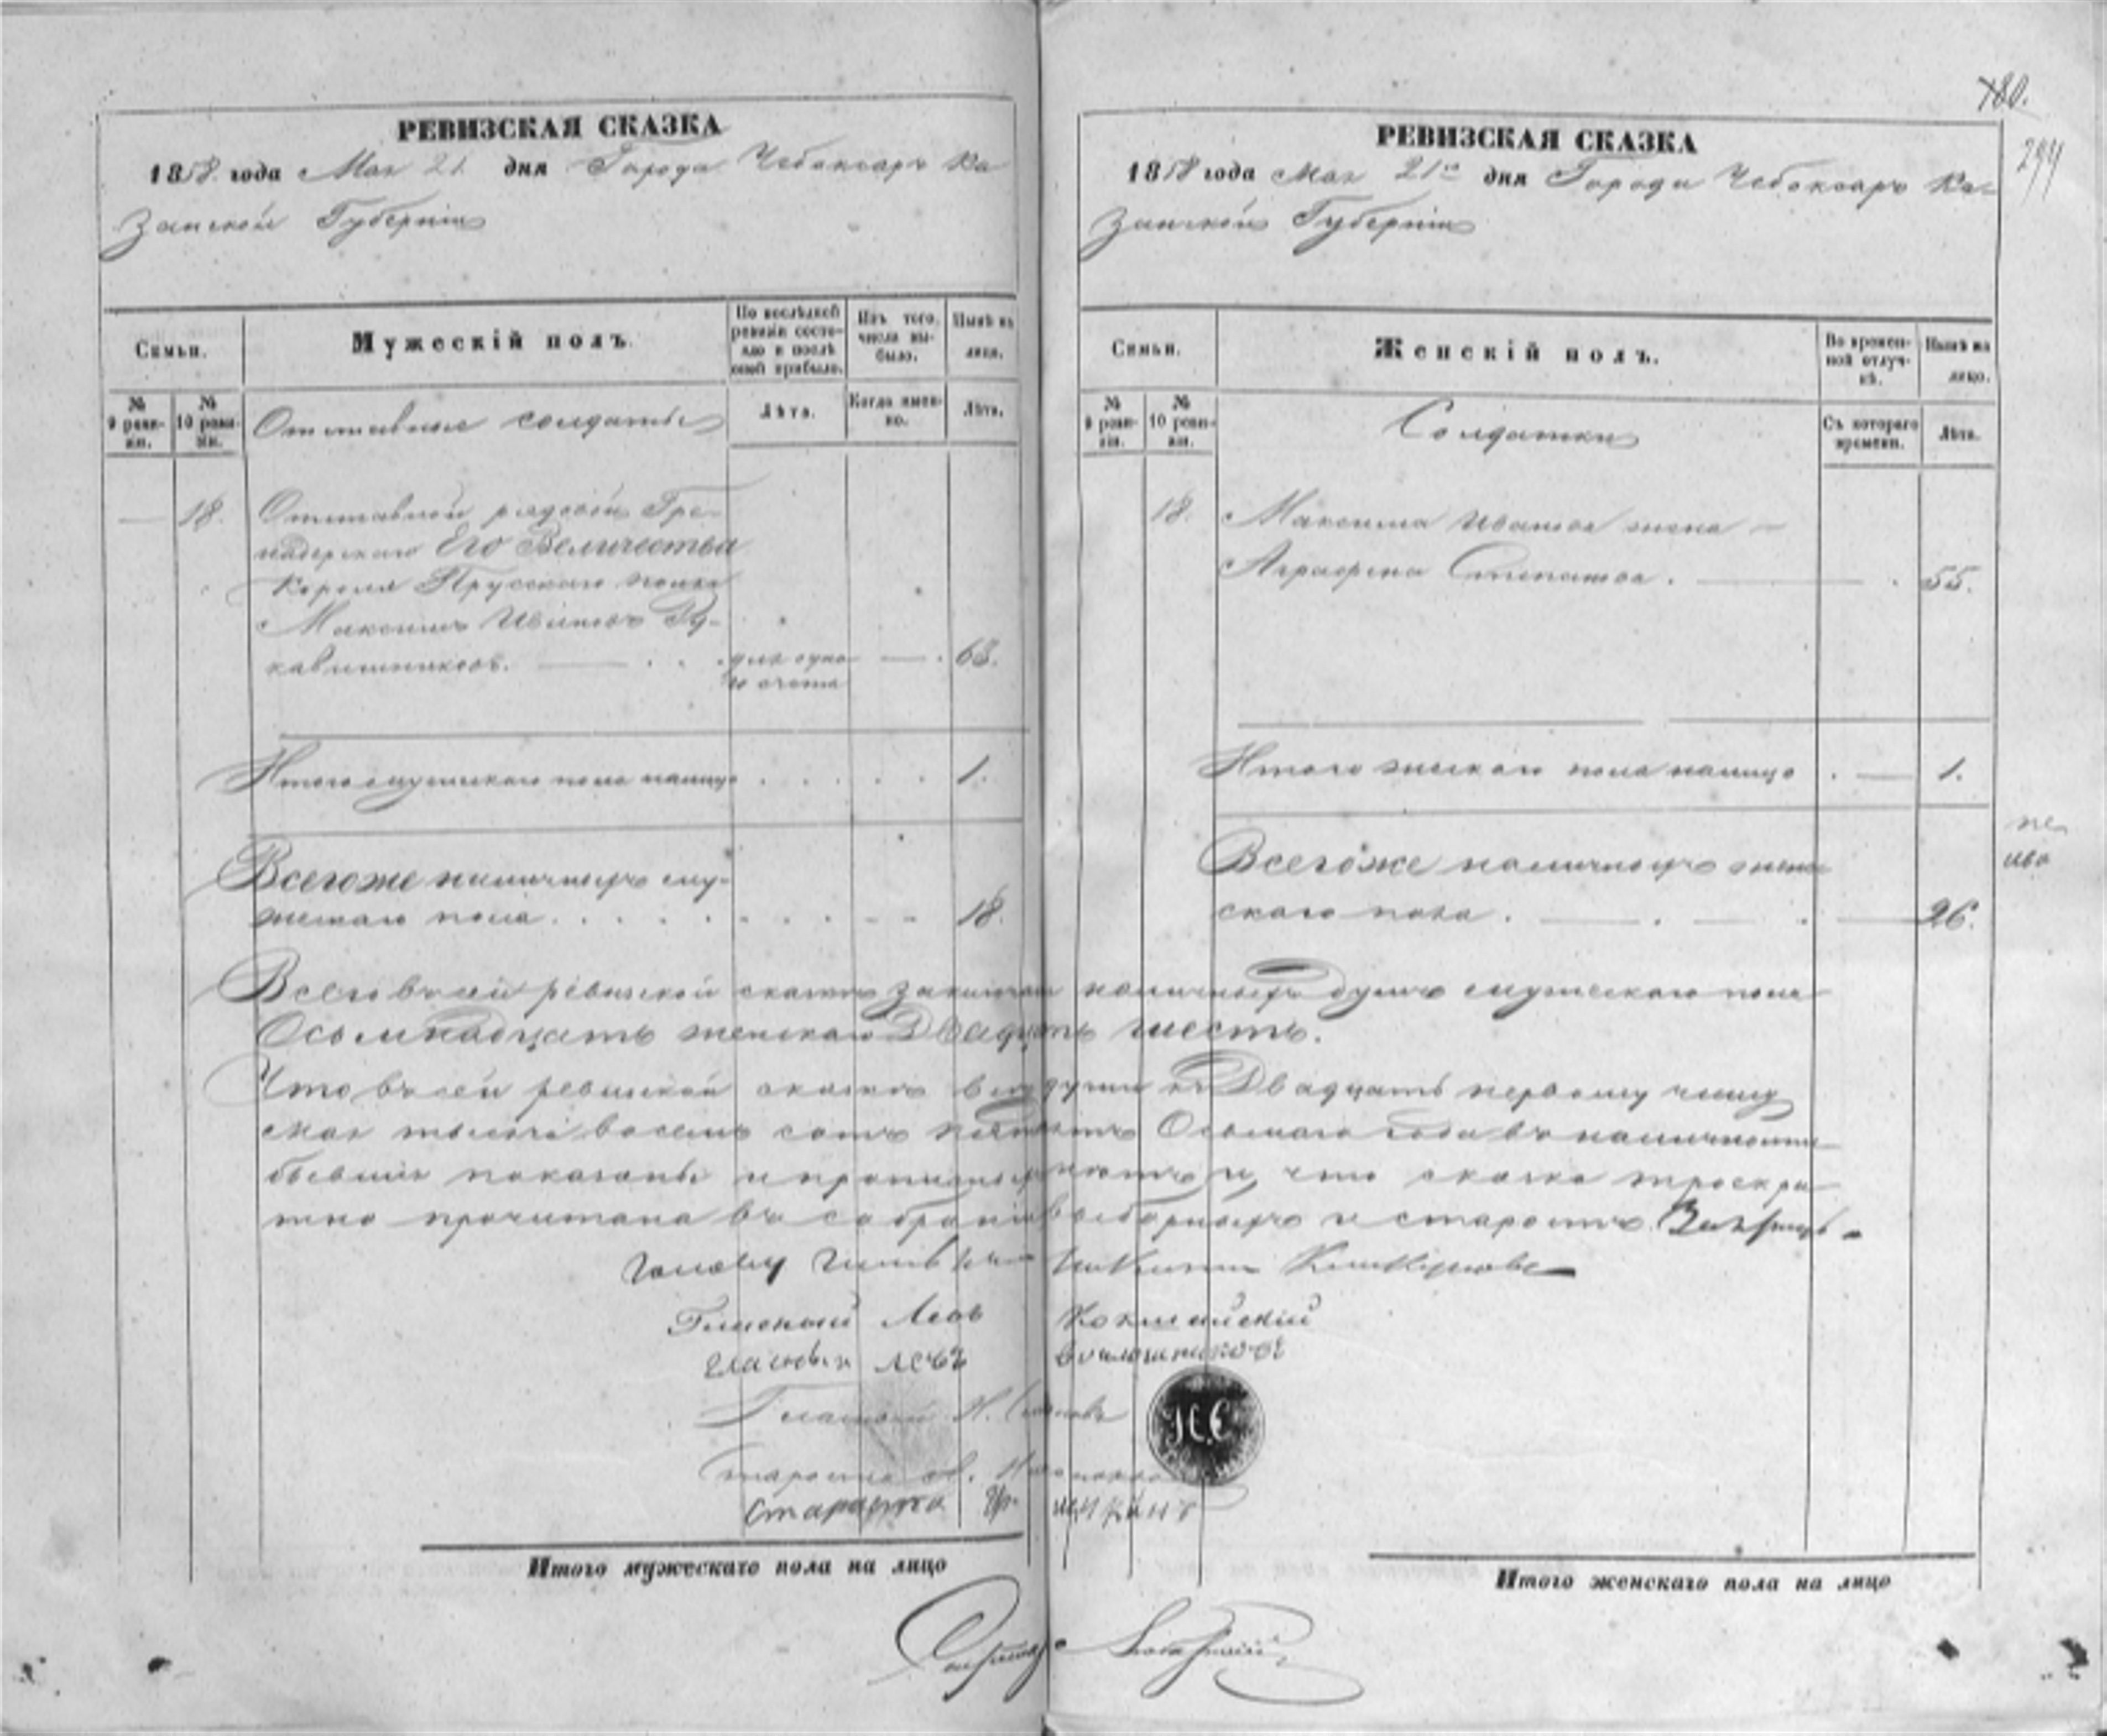 РЕВИЗСКАЯ СКАЗКА
1858 года Мая 21 дня Города Чебоксаръ Ка
занской Губерніи
Семьи.
Мужескій полъ.
По послѣдней ревизіи состояло и послѣ оной прибыло.
Изъ того числа выбыло.
Нынѣ на лицо.
№ 9 ревизіи.
№ 10 ревизіи.
Отставные солдаты
Лѣта.
Когда именно.
Лѣта.
18. Отставной рядовой Гре-
надерскаго Его Величества
Короля Прусскаго полка
Максимъ Ивановъ Ру-
кавишниковъ. 68.
Итого мужескаго пола налицо 1.
Всегоже наличныхъ му-
жескаго пола 18.
180.
294
РЕВИЗСКАЯ СКАЗКА
1858 года Мая 21го дня Города Чебоксаръ Ка-
занской Губерніи
Семьи.
Женскій полъ.
Во временной отлучкѣ.
Нынѣ на лицо.
№ 9 ревизіи.
№ 10 ревизіи.
Солдатки
Съ котораго времени.
Лѣта.
18. Максима Иванова жена
Аграфена Степанова. 55.
Итого женскаго пола налицо 1.
Всегоже наличныхъ жен
скаго пола. 26.
Всего въ сей ревизской сказкѣ наличныхъ душъ мужескаго пола
Осьмнадцать женскаго Двадцать шесть.
Что въ сей ревизской сказкѣ все души къ Двадцать первому числу
Мая тысяча восемь сотъ пятьдесятъ Осьмаго года въ наличности
бывшія показаны и что сказка троекра
тно прочитана въ собраніи выборныхъ и старостъ
Гласный Левъ Кокшайскій
Н. С.
Староста
Итого мужескаго пола на лицо
Итого женскаго пола на лицо